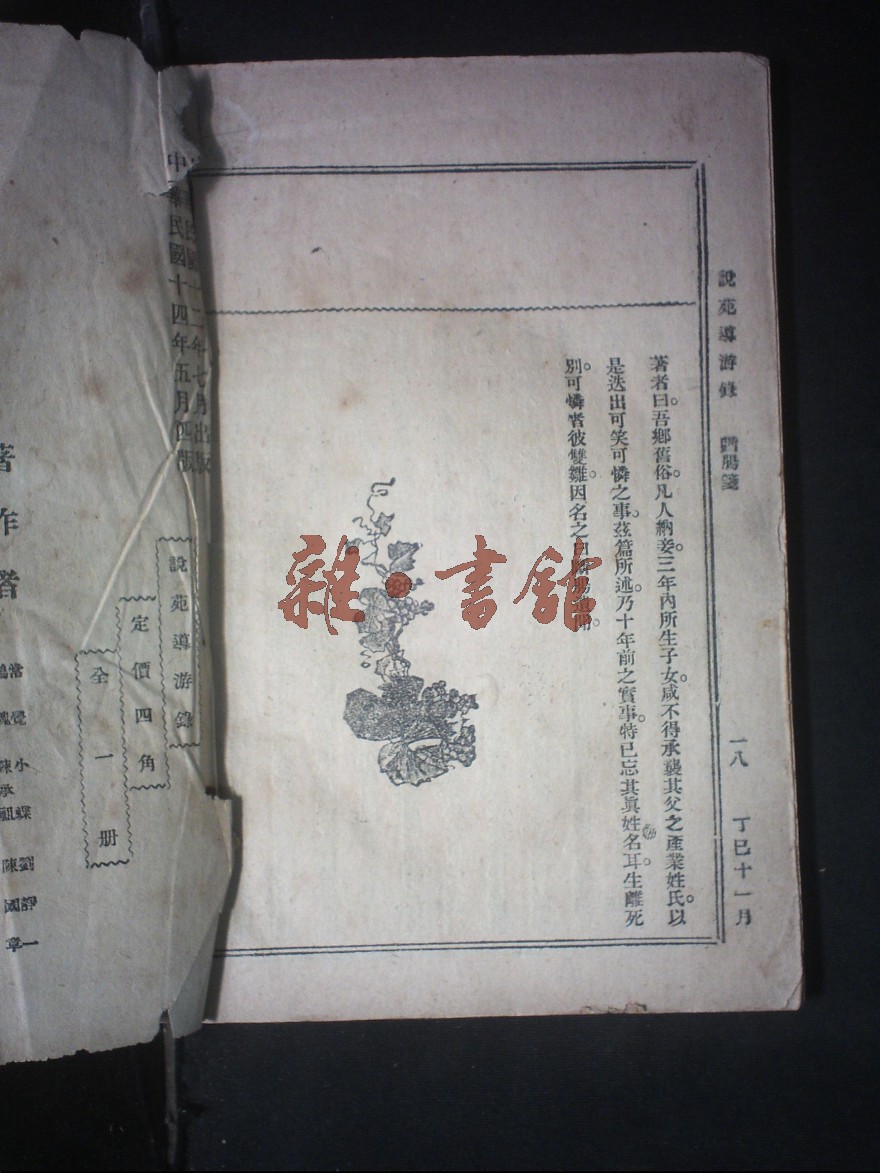 說苑導游錄
腸箋
一八
丁巳十一月
著者曰。吾鄉舊俗。凡人納妾。三年內所生子女。咸不得承襲其父之產業姓氏。以
是迭出可笑可憐之事。茲篇所述。乃十年前之實事。特已忘其眞姓名耳。生離死
別。可憐者彼雙雛。因名之曰
雜·書館
年七月出版
中華民國十四年五月四版
說苑導游錄
定價四角
全一册
著作者
常覺
小蝶
陳承祖
劉靜一
陳國章